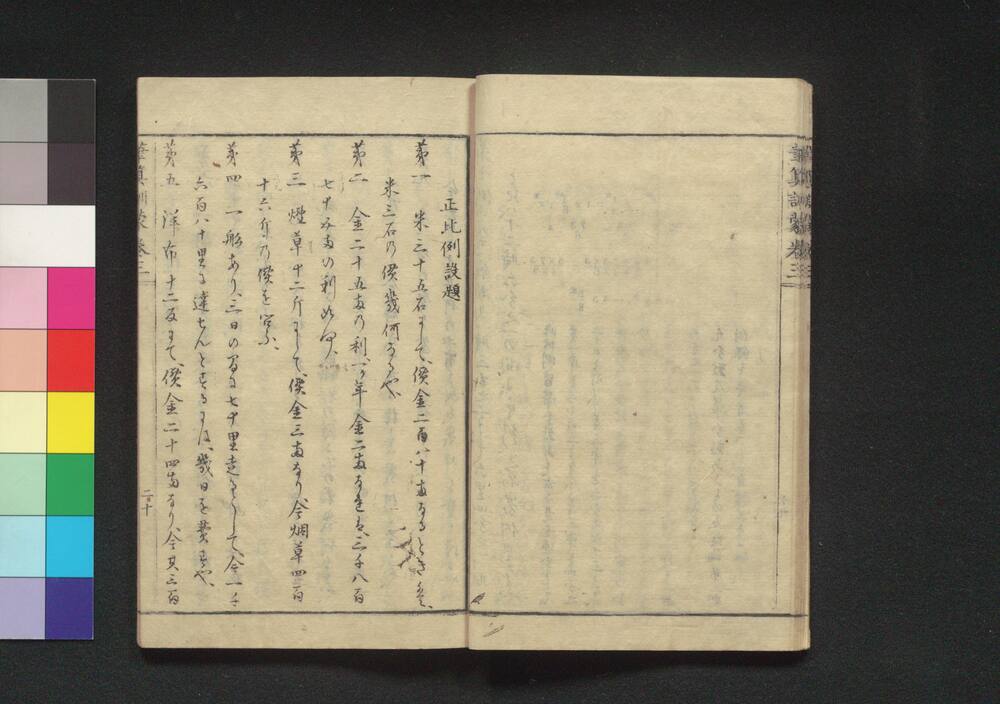 筆算訓蒙 巻三
正比例設題
第一 米三十五石にして、價金二百八十両なるときハ、
米三石の價幾何なるや
第二 金二十五両の利、一ヶ年金二両なれは、三千八百
七十五両の利如何、
第三 煙草十二斤にして、價金三両なり、今烟草四百
十六斤の價を問ふ、
第四 一船あり、三日の間に七十里走るらして、今一千
六百八十里に達せんとするには、幾日を費すや、
第五 洋布十二反にて、價金二十四両なり、今其三百
筆算訓蒙 巻三
二十